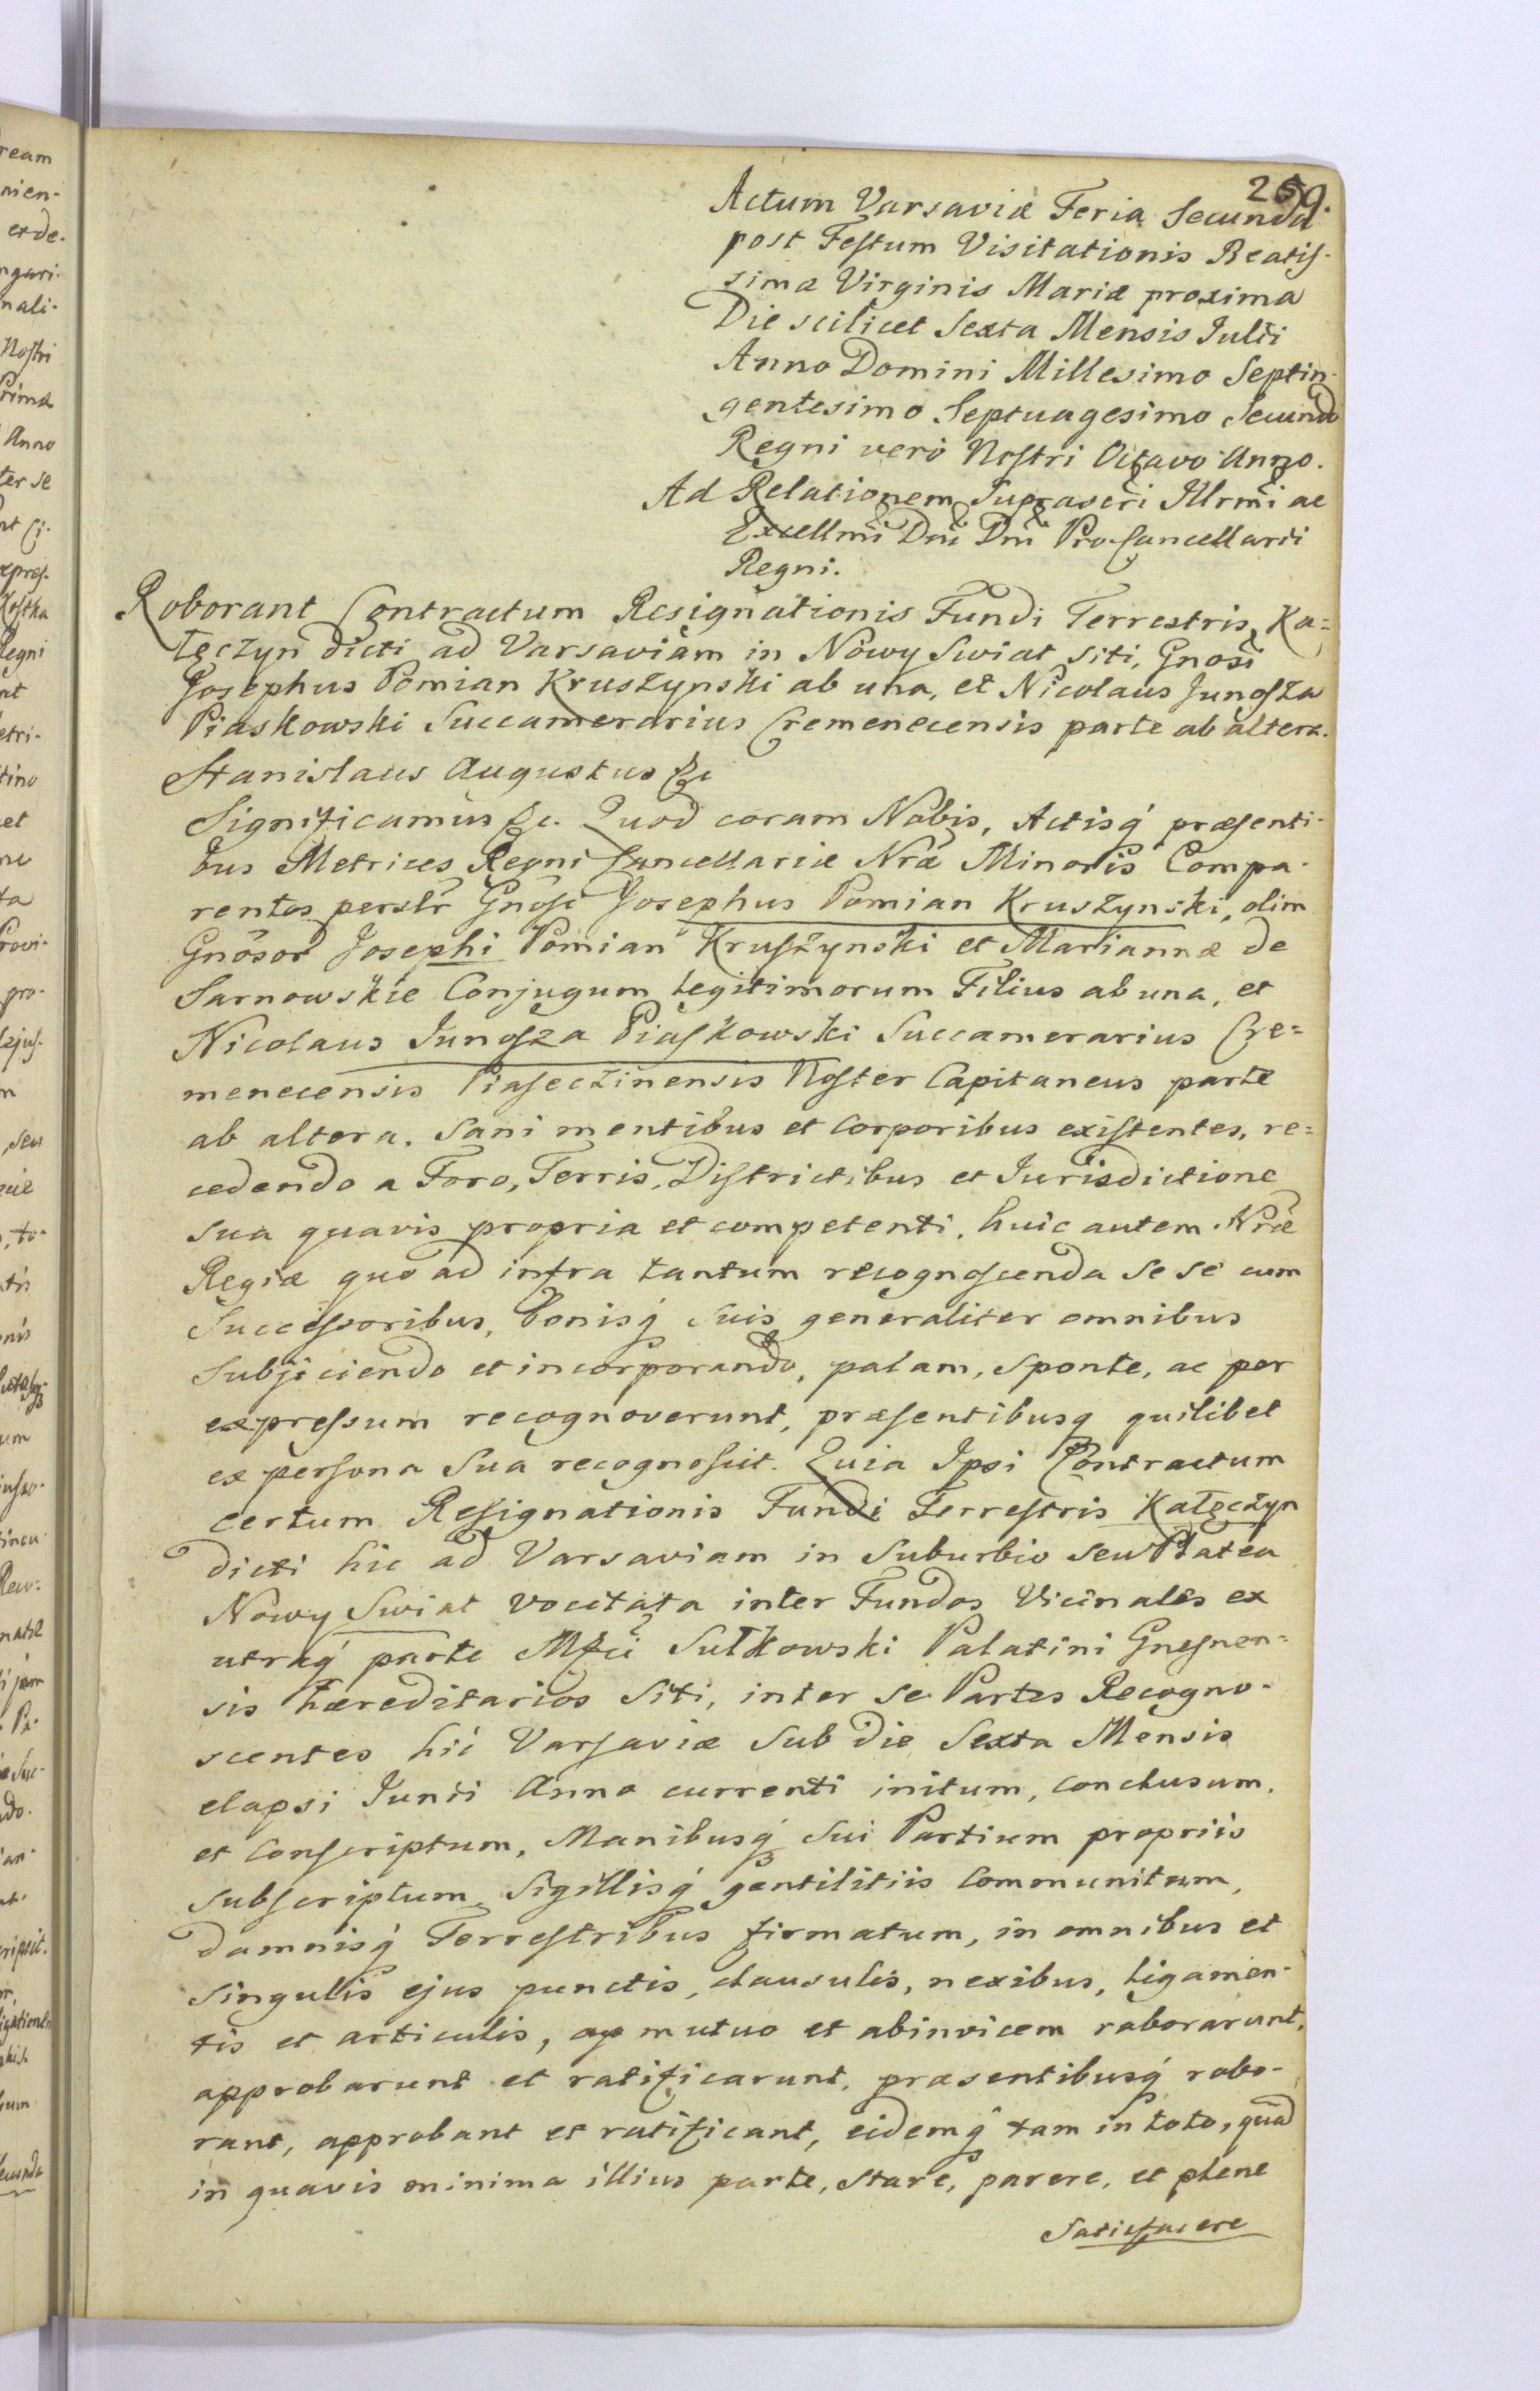 259.
Actum Varsaviæ Feria Secunda
post Festum Visitationis Beatis-
simæ Virginis Mariæ proxima
Die scilicet Sexta Mensis Julii
Anno Domini Millesimo Septin-
gentesimo Septuagesimo Secundo
Regni verò Nostri Octavo Anno.
Ad Relationem Suprascri Illrmi ac
Excellmi Dni Dni Pro-Cancellarii
Regni.
Roborant Contractum Resignationis Fundi Terrestris, Ka=
łęczyn dicti ad Varsaviam in Nowy Swiat siti, Gnosi
Josephus Pomian Kruszynski ab una, et Nicolaus Junosza
Piaskowski Succamerarius Cremenecensis parte ab altera.
Stanislaus Augustus &c
Significamus &c. Quod coram Nobis, Actisq́ præsenti-
bus Metrices Regni Cancellariæ Nræ Minoris Compa-
rentes perslr Gnosi Josephus Pomian Kruszynski, olim
Gnosor Josephi Pomian Kruszynski et Mariannæ de
Sarnowskie Conjugum legitimorum Filius ab una, et
Nicolaus Junosza Piaskowski Succamerarius Cre=
menecensis Piaseczinensis Noster Capitaneus parte
ab altera. Sani mentibus et Corporibus existentes, re=
cedendo a Foro, Terris, Districtibus et Jurisdictione
sua quavis propria et competenti, huic autem Nræ
Regiæ quo ad infra tantum recognoscenda se se cum
Successoribus, bonisq́ suis generaliter omnibus
Subjiciendo et incorporando, palam, sponte, ac per
expressum recognoverunt, præsentibusq quilibet
ex persona sua recognoscit. Quia Ipsi Contractum
certum Resignationis Fundi Terrestris Kałęczyn
dicti hic ad Varsaviam in Suburbio seu Platea
Nowy Swiat vocitata inter Fundos Vicinales ex
utraq́ parte Mfci Sułkowski Palatini Gnesnen=
sis hæreditarios siti, inter se Partes Recogno-
scentes hic Varsaviæ sub die Sexta Mensis
elapsi Junii Anno currenti initum, conclusum,
et Conscriptum, Manibusq́ sui Partium propriis
subscriptum, Sigillisq́ gentilitiis Communitum,
damnisq́ Terrestribus firmatum, in omnibus et
singulis ejus punctis, clausulis, nexibus, ligamen-
tis et articulis, mutuo et abinvicem roborarunt,
approbarunt et ratificarunt, præsentibusq́ robo-
rant, approbant et ratificant, eidemq́ tam in toto, quam
in quavis minima illius parte, stare, parere, et plene
Satisfacere